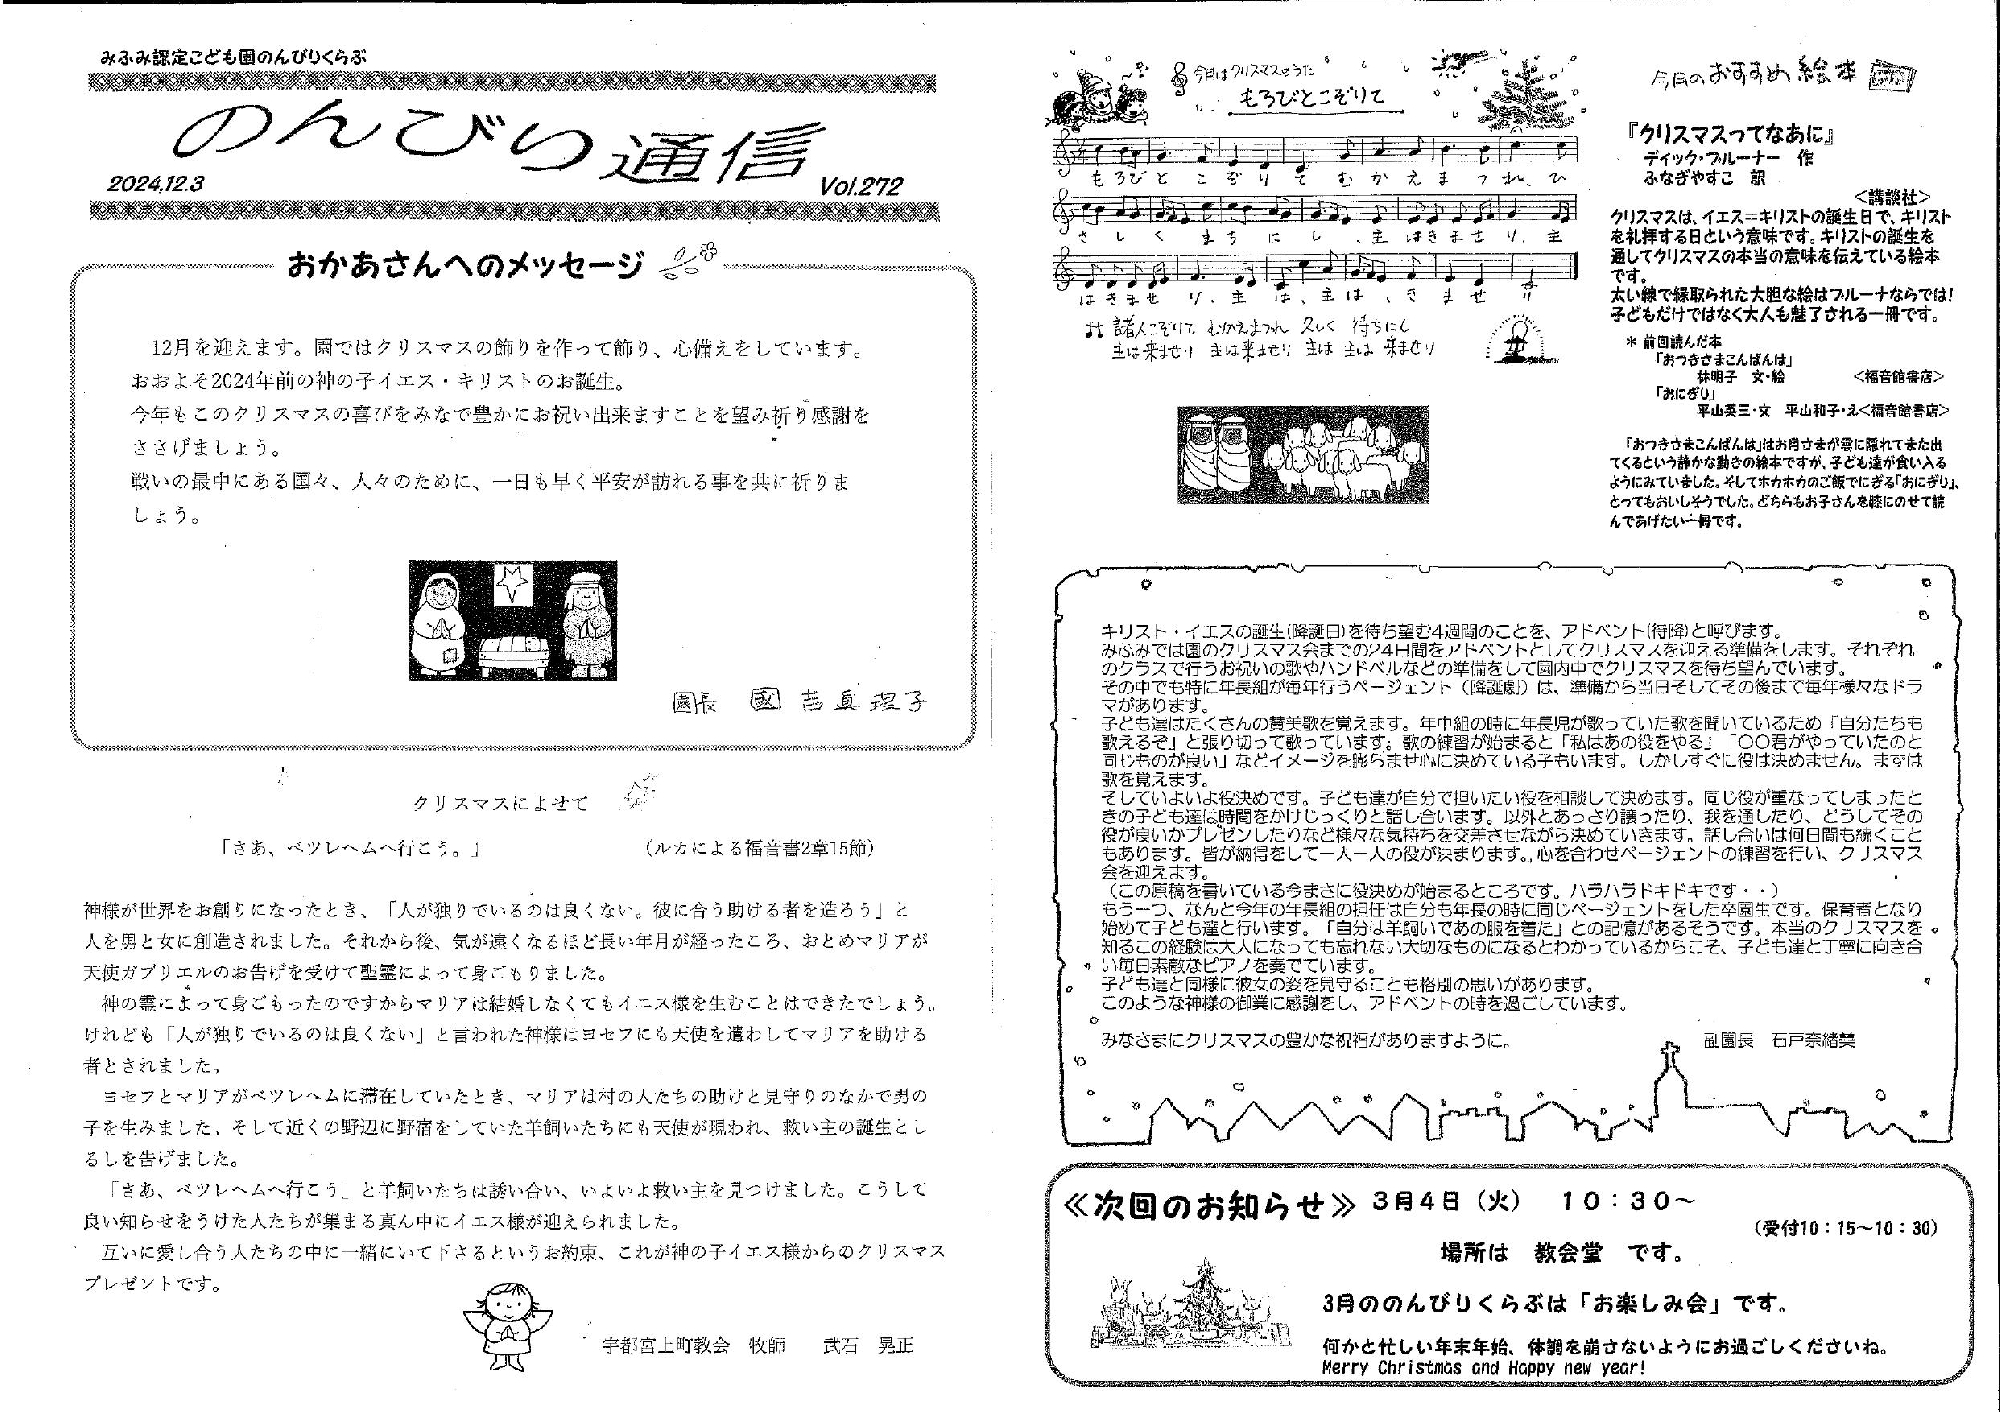 みふみ認定こども園のんびりくらぶ
のんびり通信
2024.12.3
Vol.272
おかあさんへのメッセージ
12月を迎えます。園ではクリスマスの飾りを作って飾り、心備えをしています。
おおよそ2024年前の神の子イエス・キリストのお誕生。
今年もこのクリスマスの喜びをみなで豊かにお祝い出来ますことを望み祈り感謝を
ささげましょう。
戦いの最中にある国々、人々のために、一日も早く平安が訪れる事を共に祈りま
しょう。
園長 國吉真理子
クリスマスによせて
「さあ、ベツレヘムへ行こう。」 (ルカによる福音書2章15節)
神様が世界をお創りになったとき、「人が独りでいるのは良くない。彼に合う助ける者を造ろう」と
人を男と女に創造されました。それから後、気が遠くなるほど長い年月が経ったころ、おとめマリアが
天使ガブリエルのお告げを受けて聖霊によって身ごもりました。
神の霊によって身ごもったのですからマリアは結婚しなくてもイエス様を生むことはできたでしょう。
けれども「人が独りでいるのは良くない」と言われた神様はヨセフにも天使を遣わしてマリアを助ける
者とされました。
ヨセフとマリアがベツレヘムに滞在していたとき、マリアは村の人たちの助けと見守りのなかで男の
子を生みました。そして近くの野辺に野宿をしていた羊飼いたちにも天使が現われ、救い主の誕生とし
るしを告げました。
「さあ、ベツレヘムへ行こう」と羊飼いたちは誘い合い、いよいよ救い主を見つけました。こうして
良い知らせをうけた人たちが集まる真ん中にイエス様が迎えられました。
互いに愛し合う人たちの中に一緒にいて下さるというお約束、これが神の子イエス様からのクリスマス
プレゼントです。
宇都宮上町教会 牧師 武石 晃正
今月はクリスマスのうた
もろびとこぞりて
もろびと こぞりて むかえまつれ、ひ
さしく まちにし、主はきませり、主
はきませり、主は、主は、きませり
♫ 諸人こぞりて むかえまつれ 久しく 待ちにし
主は来ませり 主は来ませり 主は 主は 来ませり
今月のおすすめ絵本
『クリスマスってなあに』
ディック・ブルーナー 作
ふなざやすこ 訳
<講談社>
クリスマスは、イエス=キリストの誕生日で、キリスト
を礼拝する日という意味です。キリストの誕生を
通してクリスマスの本当の意味を伝えている絵本
です。
太い線で縁取られた大胆な絵はブルーナならでは!
子どもだけではなく大人も魅了される一冊です。
* 前回読んだ本
「おつきさまこんばんは」
林明子 文・絵 <福音館書店>
「おにぎり」
平山英三・文 平山和子・え<福音館書店>
「おつきさまこんばんは」はお月さまが雲に隠れてまた出
てくるという静かな動きの絵本ですが、子ども達が食い入る
ようにみていました。そしてホカホカのご飯でにぎる「おにぎり」、
とってもおいしそうでした。どちらもお子さんを膝にのせて読
んであげたい一冊です。
キリスト・イエスの誕生(降誕日)を待ち望む4週間のことを、アドベント(待降)と呼びます。
みふみでは園のクリスマス会までの24日間をアドベントとしてクリスマスを迎える準備をします。それぞれ
のクラスで行うお祝いの歌やハンドベルなどの準備をして園内中でクリスマスを待ち望んでいます。
その中でも特に年長組が毎年行うページェント(降誕劇)は、準備から当日そしてその後まで毎年様々なドラ
マがあります。
子ども達はたくさんの賛美歌を覚えます。年中組の時に年長児が歌っていた歌を聞いているため「自分たちも
歌えるぞ」と張り切って歌っています。歌の練習が始まると「私はあの役をやる」「〇〇君がやっていたのと
同じものが良い」などイメージを膨らませ心に決めている子もいます。しかしすぐに役は決めません。まずは
歌を覚えます。
そしていよいよ役決めです。子ども達が自分で担いたい役を相談して決めます。同じ役が重なってしまったと
きの子ども達は時間をかけじっくりと話し合います。以外とあっさり譲ったり、我を通したり、どうしてその
役が良いかプレゼンしたりなど様々な気持ちを交差させながら決めていきます。話し合いは何日間も続くこと
もあります。皆が納得をして一人一人の役が決まります。,心を合わせページェントの練習を行い、クリスマス
会を迎えます。
(この原稿を書いている今まさに役決めが始まるところです。ハラハラドキドキです・・)
もう一つ、なんと今年の年長組の担任は自分も年長の時に同じページェントをした卒園生です。保育者となり
始めて子ども達と行います。「自分は羊飼いであの服を着た」との記憶があるそうです。本当のクリスマスを
知るこの経験は大人になっても忘れない大切なものになるとわかっているからこそ、子ども達と丁寧に向き合
い毎日素敵なピアノを奏でています。
子ども達と同様に彼女の姿を見守ることも格別の思いがあります。
このような神様の御業に感謝をし、アドベントの時を過ごしています。
みなさまにクリスマスの豊かな祝福がありますように。 副園長 石戸奈緒美
≪次回のお知らせ≫ 3月4日(火) 10:30~
(受付10:15~10:30)
場所は 教会堂 です。
3月ののんびりくらぶは「お楽しみ会」です。
何かと忙しい年末年始、体調を崩さないようにお過ごしくださいね。
Merry Christmas and Happy new year!